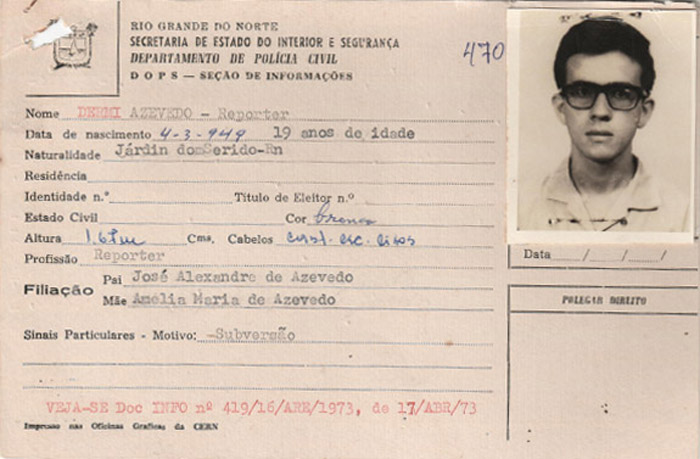 RIO GRANDE DO NORTE
SECRETARIA DE ESTADO DO INTERIOR E SEGURANÇA
DEPARTAMENTO DE POLÍCIA CIVIL
DOPS — SEÇÃO DE INFORMAÇÕES
470
Nome DERMI AZEVEDO - Reporter
Data de nascimento 4-3-949 19 anos de idade
Naturalidade Járdin do Serido-Rn
Residência
Identidade n.º Título de Eleitor n.º
Estado Civil Cor branca
Altura Cms, Cabelos cast. esc. lisos
Profissão Reporter
Filiação
Pai José Alexandre de Azevedo
Mãe Amélia Maria de Azevedo
Sinais Particulares - Motivo: -Subversão
VEJA-SE Doc INFO nº 419/16/ARE/1973, de 17/ABR/73
Impresso nas Oficinas Graficas da CERN
Data / / /
POLEGAR DIREITO